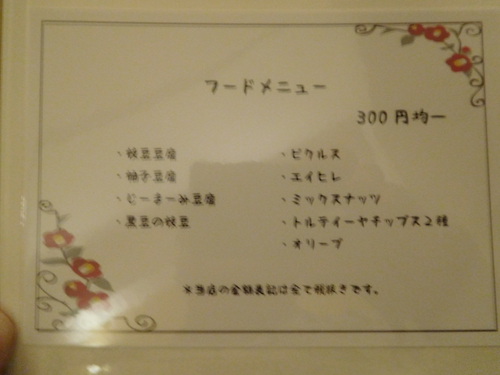 フードメニュー
300円均一
・枝豆豆腐
・柚子豆腐
・じーまーみ豆腐
・黒豆の枝豆
・ピクルス
・エイヒレ
・ミックスナッツ
・トルティーヤチップス2種
・オリーブ
※当店の金額表記は全て税抜きです。